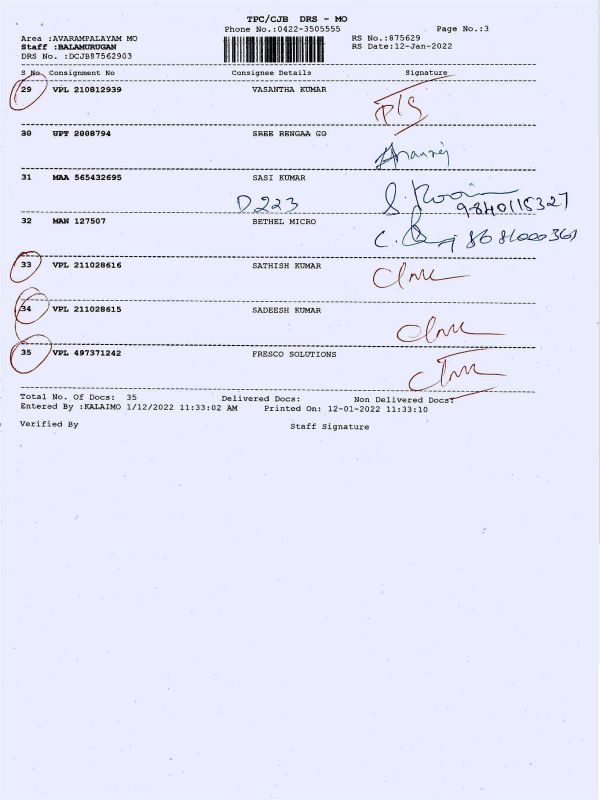 TPC/CJB DRS - MO
Phone No.:0422-3505555 Page No.:3
Area :AVARAMPALAYAM MO RS No.:875629
Staff :BALAMURUGAN RS Date:12-Jan-2022
DRS No. :DCJB87562903
S No Consignment No Consignee Details Signature
29 VPL 210812939 VASANTHA KUMAR
30 UPT 2008794 SREE RENGAA GO
31 MAA 565432695 SASI KUMAR
D223 9840115327
32 MAN 127507 BETHEL MICRO
33 VPL 211028616 SATHISH KUMAR
34 VPL 211028615 SADEESH KUMAR
35 VPL 497371242 FRESCO SOLUTIONS
Total No. Of Docs: 35 Delivered Docs: Non Delivered Docs:
Entered By :KALAIMO 1/12/2022 11:33:02 AM Printed On: 12-01-2022 11:33:10
Verified By Staff Signature